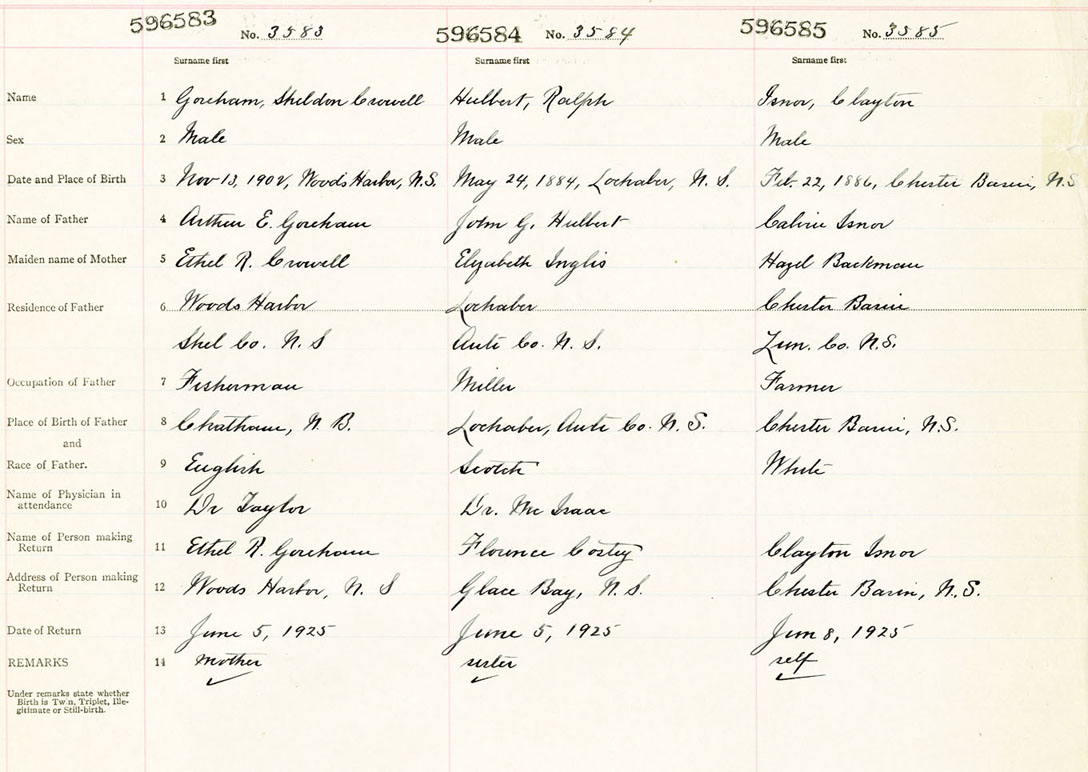 596583 No. 3583 596584 No. 3584 596585 No. 3585
Surname first Surname first Surname first
Name 1 Goreham, Sheldon Crowell Hulbert, Ralph Isnor, Clayton
Sex 2 Male Male Male
Date and Place of Birth 3 Nov 13, 1902, Woods Harbor, N.S. May 24, 1884, Lochaber, N. S. Feb. 22, 1886, Chester Basin, N.S
Name of Father 4 Arthur E. Goreham John G. Hulbert Calvin Isnor
Maiden name of Mother 5 Ethel R. Crowell Elizabeth Inglis Hazel Backman
Residence of Father 6 Woods Harbor Lochaber Chester Basin
Shel Co. N. S Anti Co. N. S. Lun. Co. N.S.
Occupation of Father 7 Fisherman Miller Farmer
Place of Birth of Father 8 Chatham, N. B. Lochaber, Anti Co. N. S. Chester Basin, N.S.
and
Race of Father. 9 English Scotch White
Name of Physician in
attendance 10 Dr Taylor Dr. Mc Isaac
Name of Person making
Return 11 Ethel R. Goreham Florence Clayton Isnor
Address of Person making
Return 12 Woods Harbor, N. S Glace Bay, N. S. Chester Basin, N.S.
Date of Return 13 June 5, 1925 June 5, 1925 Jun 8, 1925
REMARKS 14 mother sister self
Under remarks state whether
Birth is Twin, Triplet, Ille-
gitimate or Still-birth.